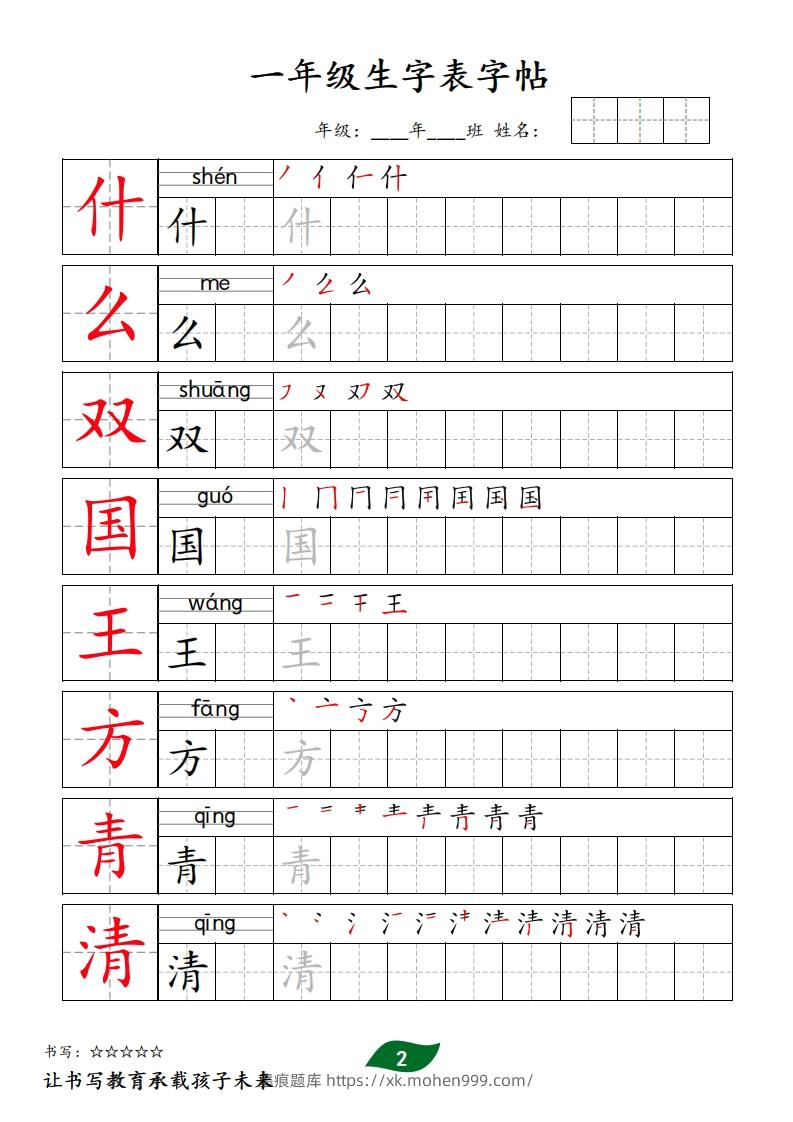 一年级生字表字帖
年级：____年____班 姓名：
什 shén 丿 亻 仁 什
什 什
么 me 丿 么 么
么 么
双 shuāng 刁 又 双 双
双 双
国 guó 丨 冂 国
国 国
王 wáng 一 二 干 王
王 王
方 fāng 丶 亠 方
方 方
青 qīng 一 二 青
青 青
清 qīng 丶 氵 清
清 清
书写：☆☆☆☆☆
2
让书写教育承载孩子未来
痕题库 https://xk.mohen999.com/